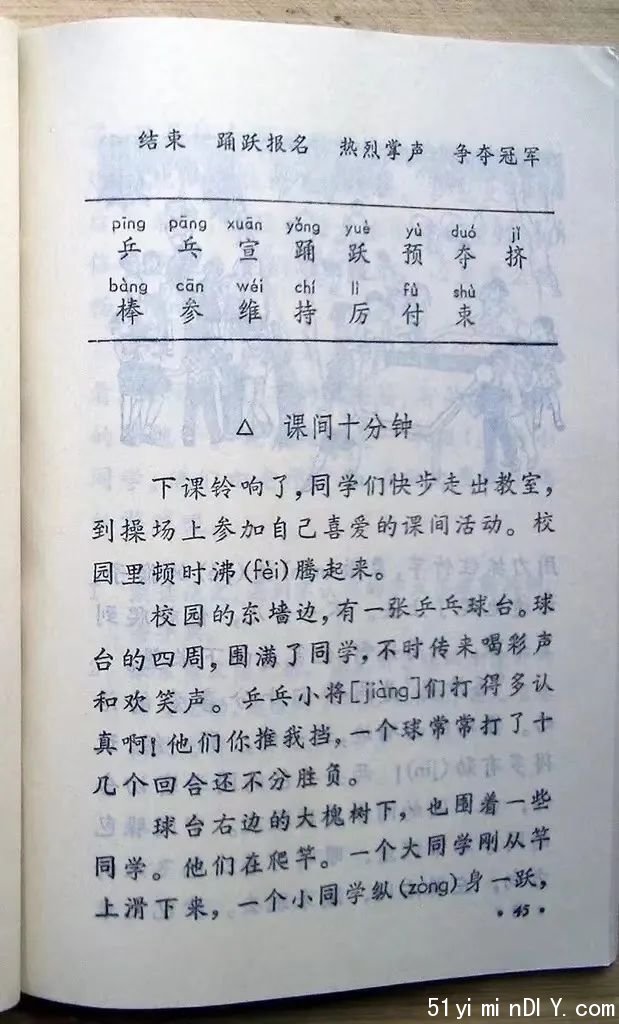 结束 踊跃报名 热烈掌声 争夺冠军
pīng pāng xuān yǒng yuè yù duó jǐ
乒 乓 宣 踊 跃 预 夺 挤
bàng cān wéi chí lì fù shù
棒 参 维 持 厉 付 束
△ 课间十分钟
下课铃响了，同学们快步走出教室，
到操场上参加自己喜爱的课间活动。校
园里顿时沸(fèi)腾起来。
校园的东墙边，有一张乒乓球台。球
台的四周，围满了同学，不时传来喝彩声
和欢笑声。乒乓小将[jiàng]们打得多认
真啊！他们你推我挡，一个球常常打了十
几个回合还不分胜负。
球台右边的大槐树下，也围着一些
同学。他们在爬竿。一个大同学刚从竿
上滑下来，一个小同学纵(zòng)身一跃，
·45·
51yiminDIY.com